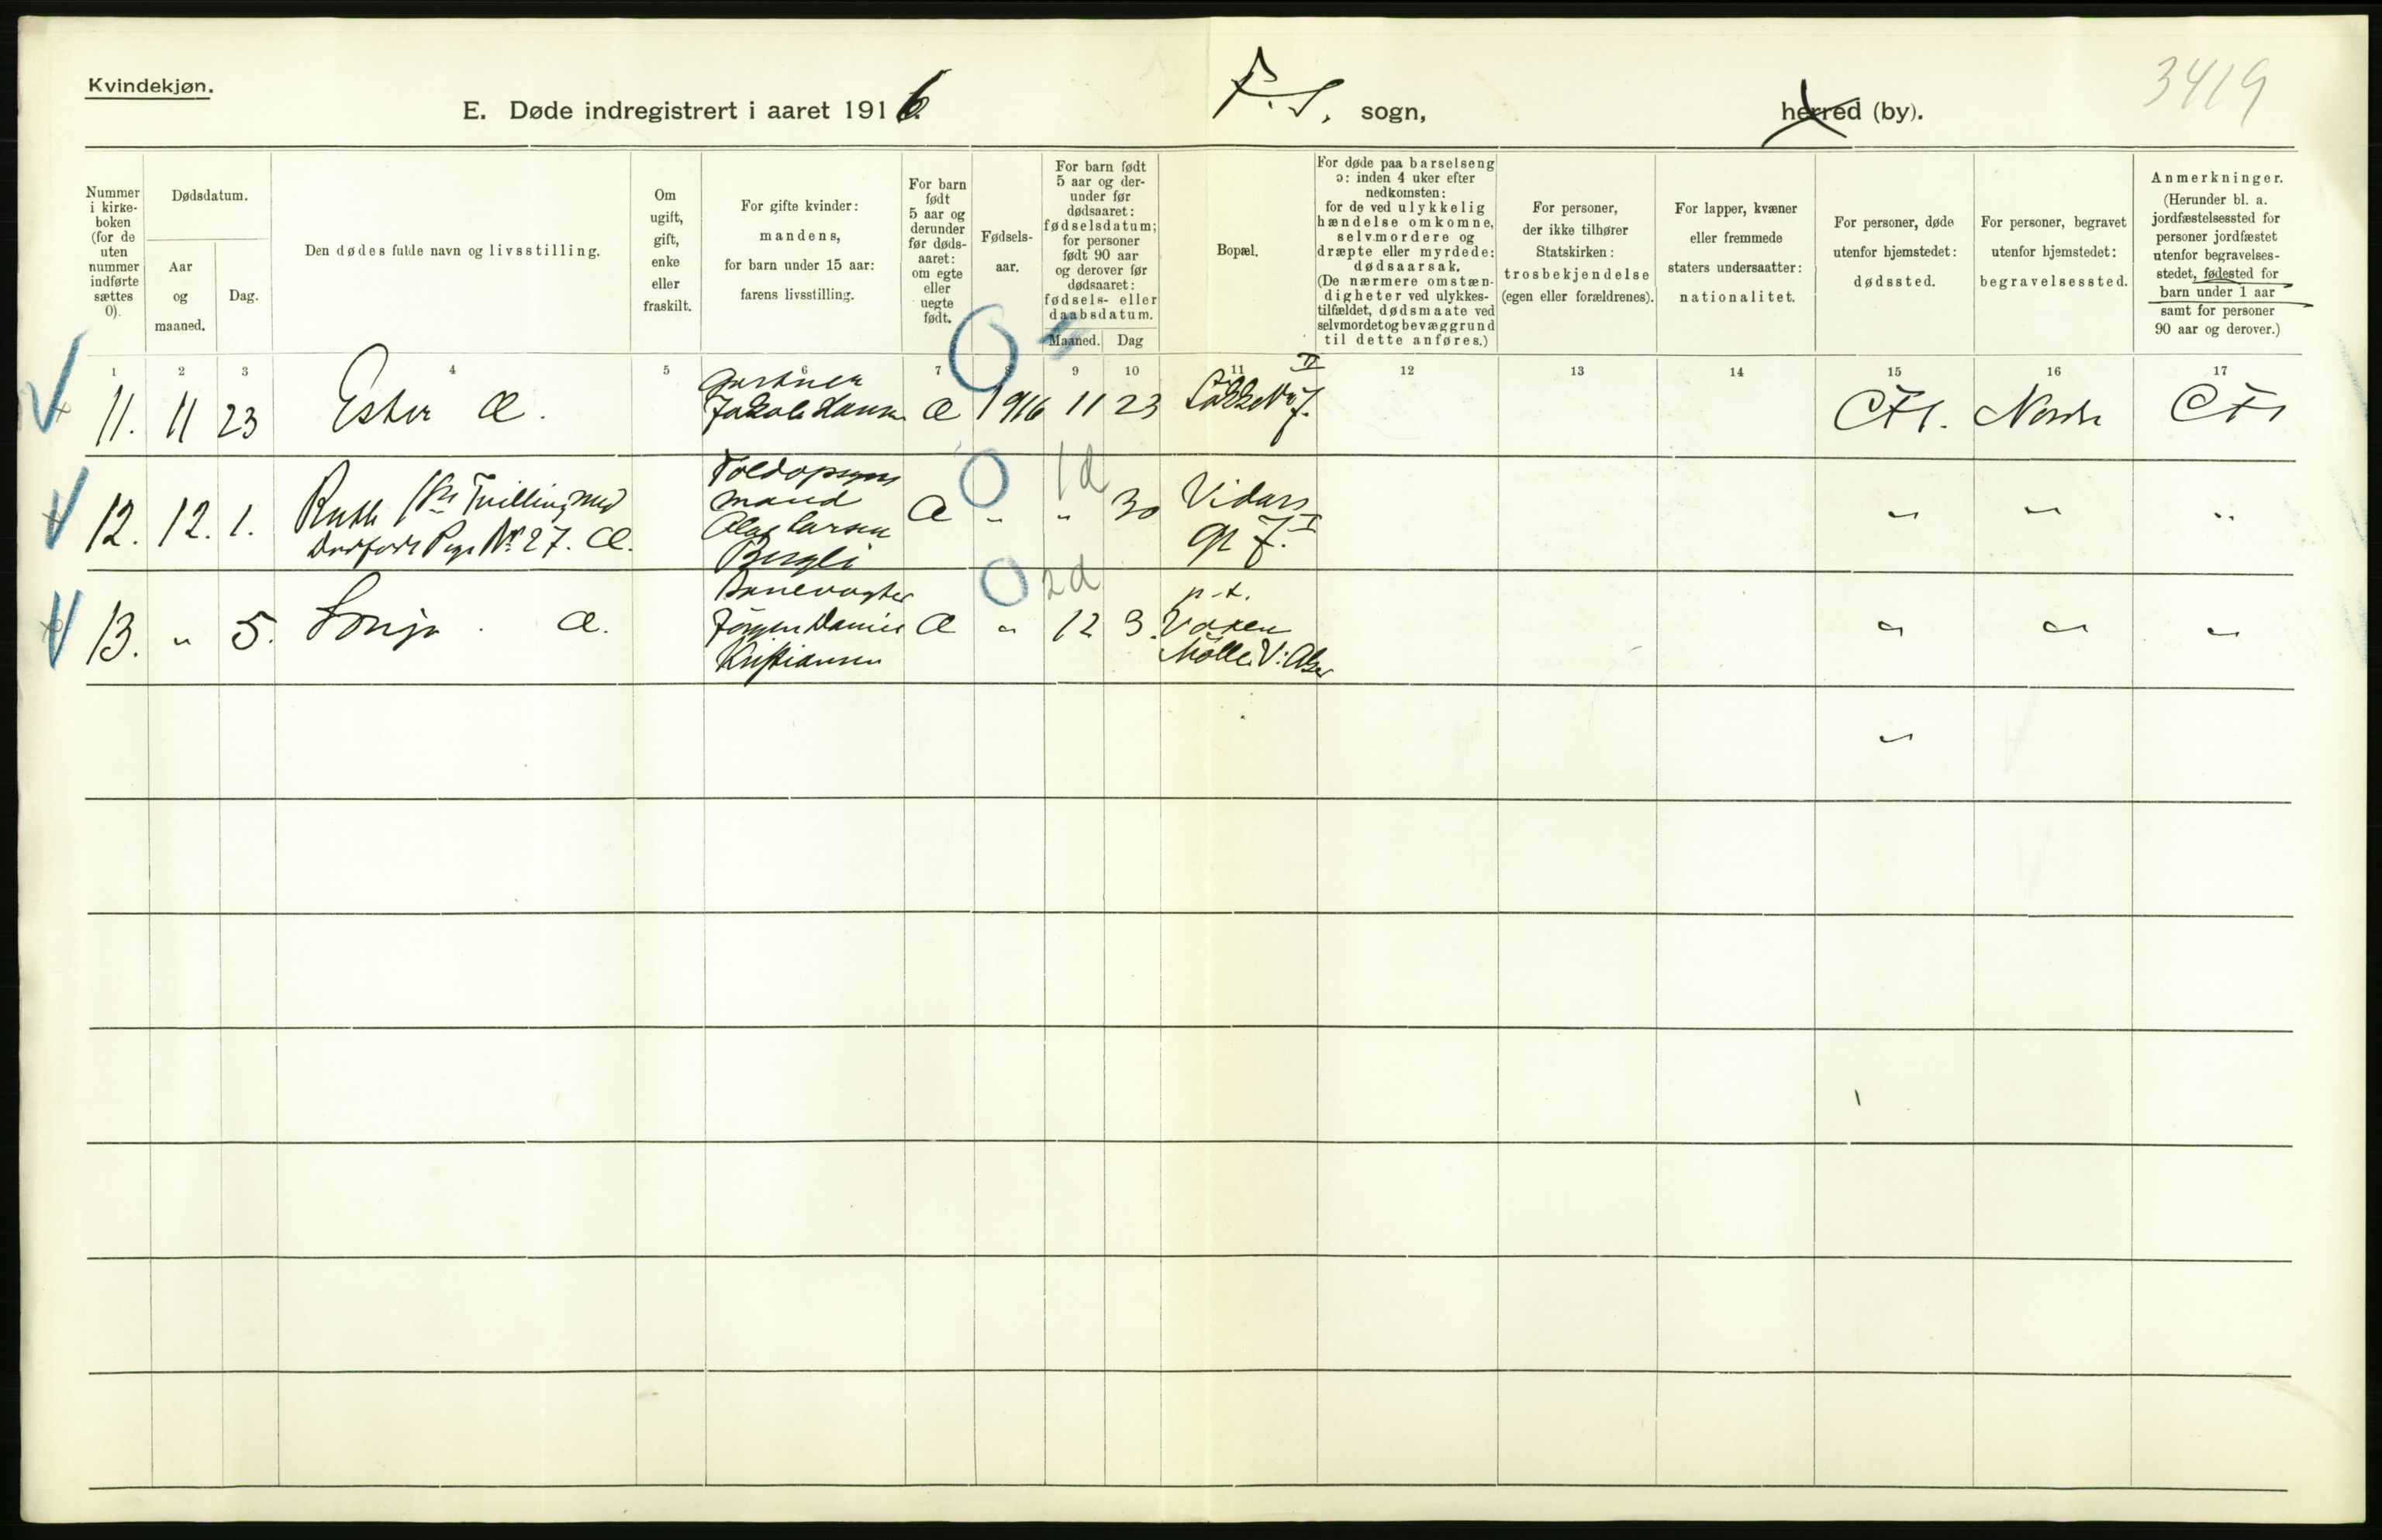 Kvindekjøn.
E. Døde indregistrert i aaret 1916. F.S. sogn, herred (by).
3419
Nummer
i kirke-
boken
(for de
uten
nummer
indførte
sættes
0).
Dødsdatum.
Aar
og
maaned.
Dag.
Den dødes fulde navn og livsstilling.
Om
ugift,
gift,
enke
eller
fraskilt.
For gifte kvinder:
mandens,
for barn under 15 aar:
farens livsstilling.
For barn
født
5 aar og
derunder
før døds-
aaret:
om egte
eller
uegte
født.
Fødsels-
aar.
For barn født
5 aar og der-
under før
dødsaaret:
fødselsdatum;
for personer
født 90 aar
og derover før
dødsaaret:
fødsels- eller
daabsdatum.
Maaned. Dag
Bopæl.
For døde paa barselseng
ɔ: inden 4 uker efter
nedkomsten:
for de ved ulykkelig
hændelse omkomne,
selvmordere og
dræpte eller myrdede:
dødsaarsak.
(De nærmere omstæn-
digheter ved ulykkes-
tilfældet, dødsmaate ved
selvmord et og bevæggrund
til dette anføres.)
For personer,
der ikke tilhører
Statskirken:
trosbekjendelse
(egen eller forældrenes).
For lapper, kvæner
eller fremmede
staters undersaatter:
nationalitet.
For personer, døde
utenfor hjemstedet:
dødssted.
For personer, begravet
utenfor hjemstedet:
begravelsessted.
Anmerkninger.
(Herunder bl. a.
jordfæstelsessted for
personer jordfæstet
utenfor begravelses-
stedet, fødested for
barn under 1 aar
samt for personer
90 aar og derover.)
1 2 3 4 5 6 7 8 9 10 11 12 13 14 15 16 17
11. 11 23 Ester Æ.
Gartner
Jakob Hansen
Æ 1916 11 23
II
7.
Nordre
12. 12. 1. Ruth Tvilling med
Pige No 27. Æ.
Toldopsyns
mand
Olaf Larsen
Bergli
Æ 0 " 1d " 30
Vidars
gt 7. I
" " "
13. " 5. Sonja. Æ.
Banevogter
Jørgen Daniel
Kristiansen
Æ 0 " 2d 12 3.
p.t.
Voxen
Mølle V. Aker
" " "
"